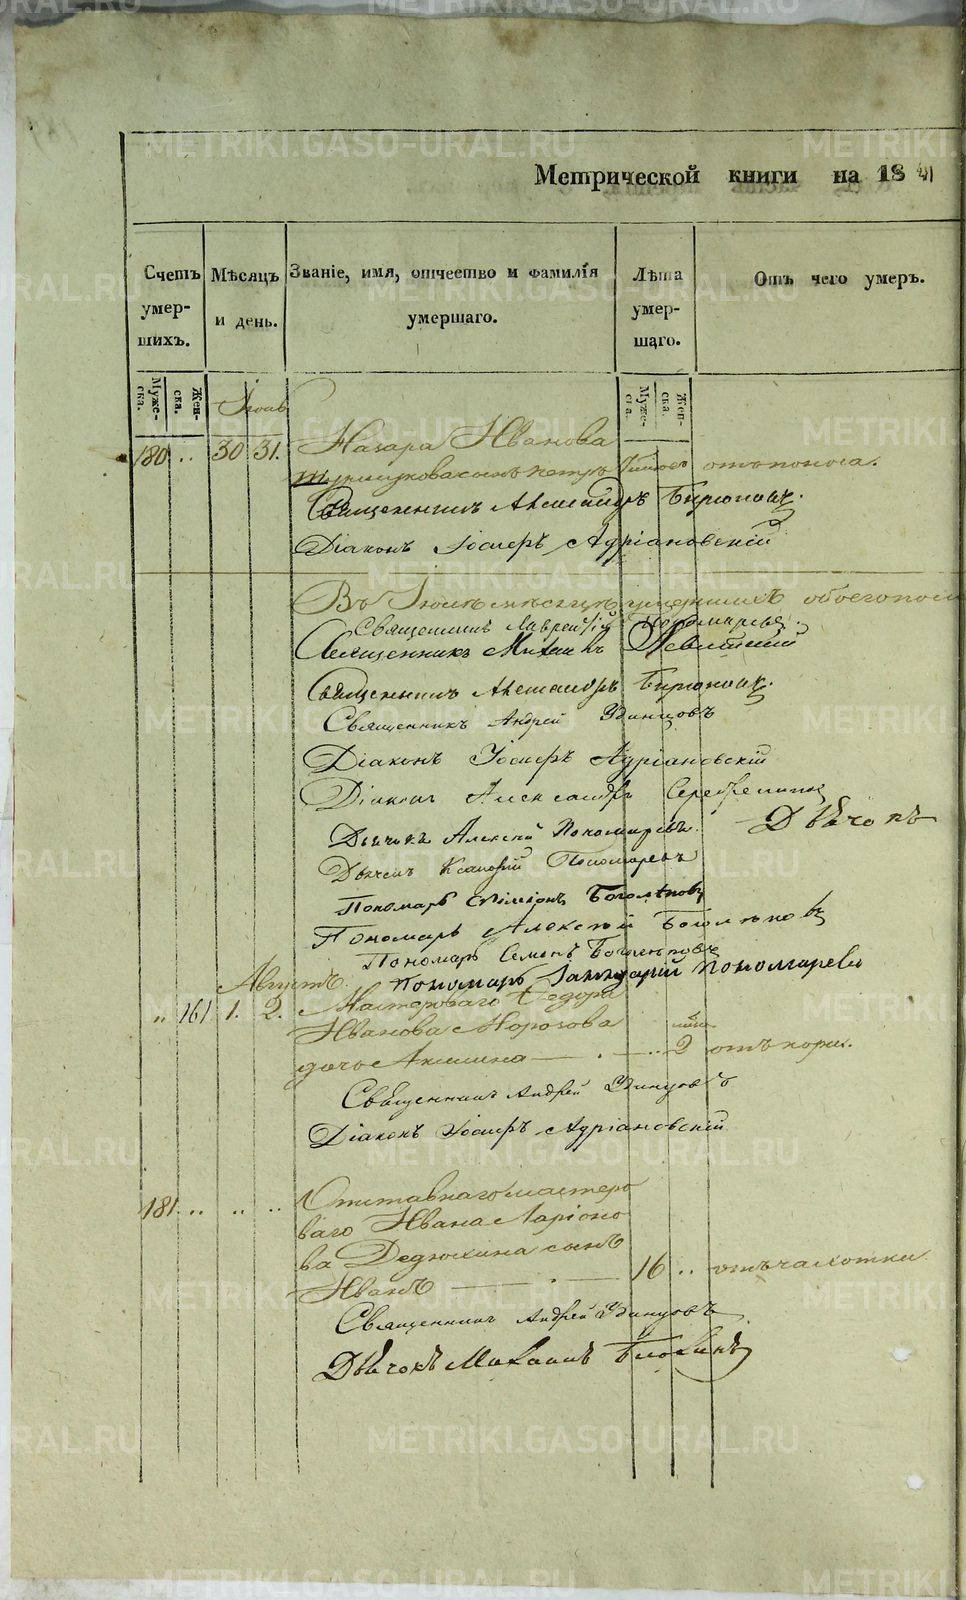 METRIKI.GASO-URAL.RU
Метрической книги на 1841
Счетъ умер- шихъ.
Мѣсяцъ и день.
Званіе, имя, отчество и фамилія умершаго.
Лѣта умер- шаго.
Отъ чего умеръ.
Муже- ска.
Жен- ска.
Муже- ска.
Жен- ска.
Іюль
180 .. 30 31. Назара Иванова
сынъ Петръ отъ поноса.
Священникъ Александръ Бирюковъ.
Діаконъ Іосифъ Адріановскій
Въ Іюлѣ мѣсяцѣ умершихъ обоего пола
Священникъ Лаврентій Пономаревъ.
Священникъ Михаилъ Левитскій
Священникъ Александръ Бирюковъ.
Священникъ Андрей Удинцовъ
Діаконъ Іосифъ Адріановскій
Діаконъ Александръ Серебренниковъ
Дьячокъ Алексій Пономаревъ.
Дьячокъ
Дьячекъ Пономаревъ
Пономарь Симіонъ Боголѣповъ
Пономарь Алексѣй Боголѣповъ
Пономарь Семенъ Боголѣповъ
Августъ. Пономарь Іаннуарій Пономаревъ
.. 161 1. 2. Мастероваго Ѳедора
Иванова Морозова
дочь Акилина — . — .. 2 отъ кори.
Священникъ Андрей Удинцовъ
Діаконъ Іосифъ Адріановскій
181 .. .. .. Отставнаго мастеро
ваго Ивана Ларіоно
ва Дедюхина сынъ
Иванъ — . — 16 .. отъ чахотки
Священникъ Андрей Удинцовъ
Дьячокъ Михаилъ Блохинъ